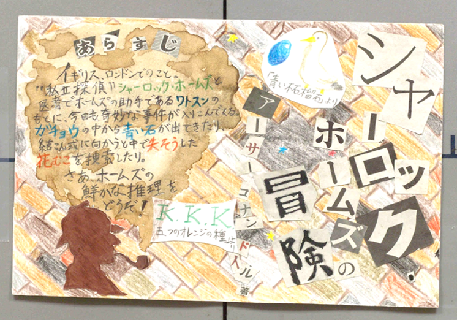 シャーロック・
ホームズの
冒険
アーサー・コナン・ドイル 著
あらすじ
イギリス、ロンドンでのこと。
私立探偵のシャーロック・ホームズと
ホームズの助手であるワトスンの
もとに、今日も奇妙な事件が
ガチョウの中から青い石が出てきたり、
結婚式に向かう途中で失そうした
花よめを捜索したり。
さあ、ホームズの
鮮かな推理を
どうぞ!
K.K.K
五つのオレンジの種